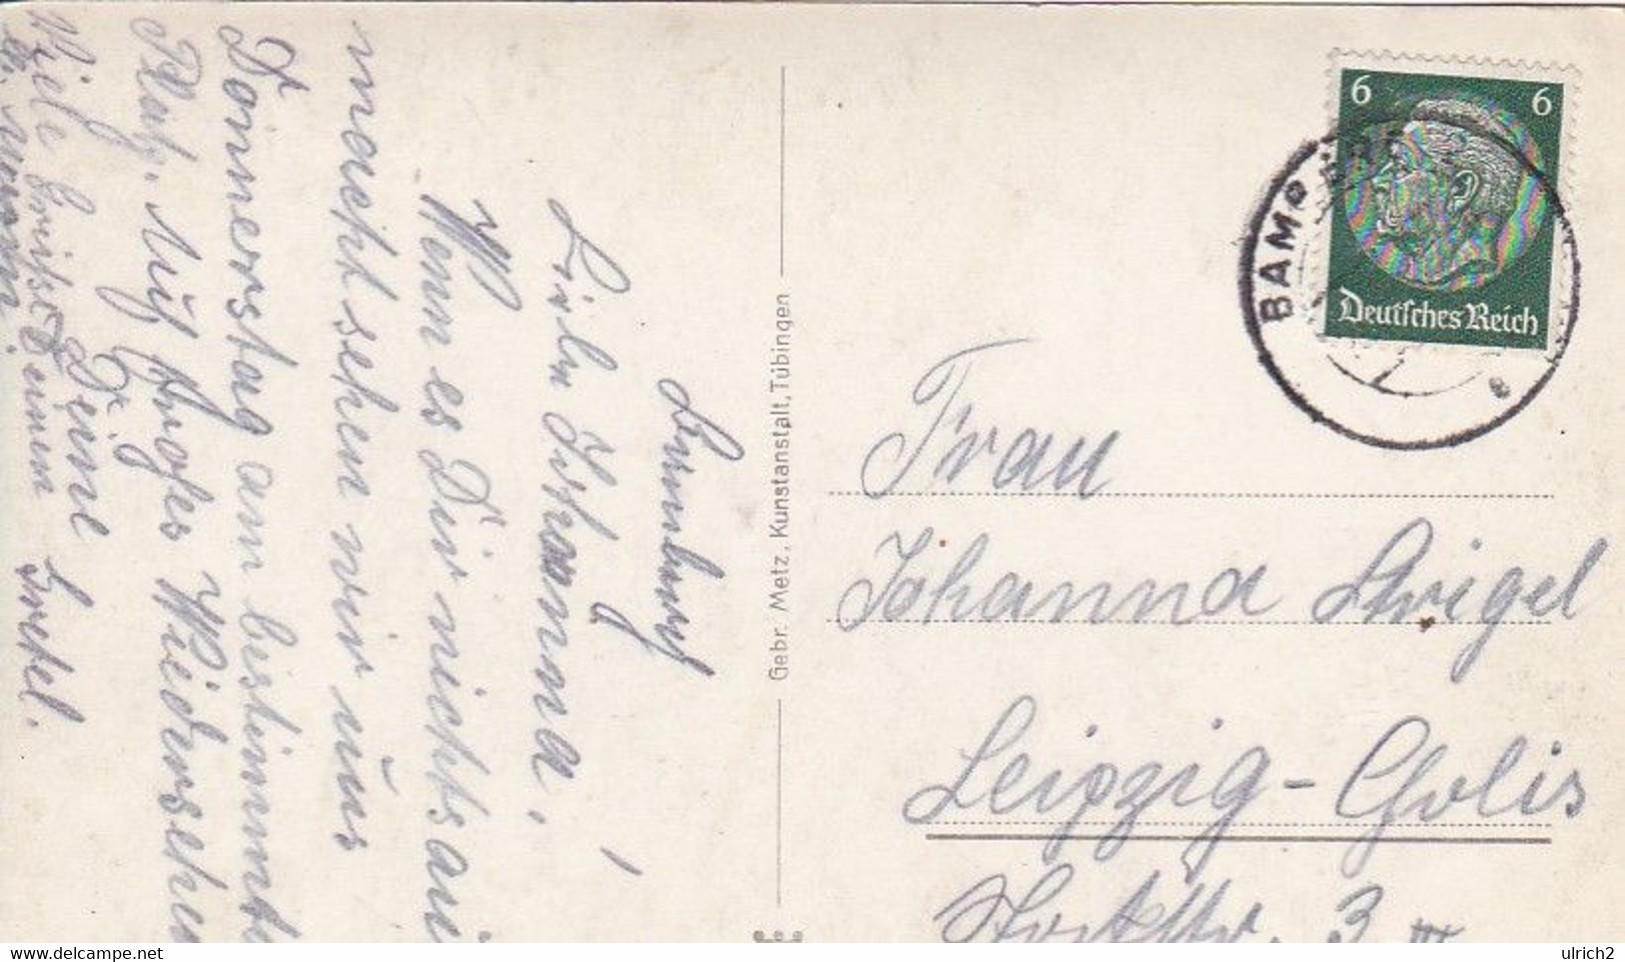 Bamburg
Liebe Johanna,
Wenn es Dir nichts aus
macht sehen wir uns
Donnerstag am bestimmten
Platz. Auf frohes Wiedersehen
Deine Gretel.
Viele Grüße Deinen
Gebr. Metz, Kunstanstalt, Tübingen
6 6
Deutsches Reich
BAMBERG
e
Frau
Johanna Strigel
Leipzig-Gohlis
3 III
delcampe.net
ulrich2